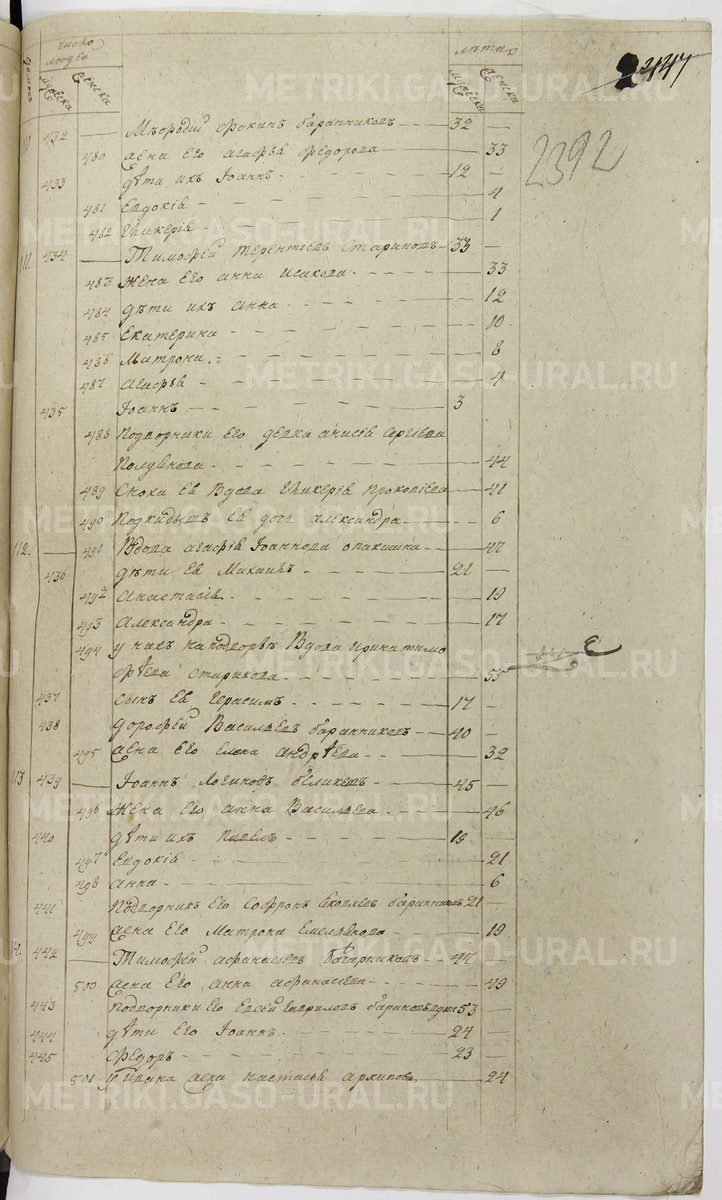 число людей лѣта
домовъ мужеска женска мужеска женска 2447
2392
432 Мѣѳодiй Фокинъ баранниковъ 32
480 жена Его агафья Федорова 33
433 дѣти ихъ Iоаннъ 12
481 Евдокiя 4
482 Гликерiя 1
111. 434 Тимофей терентiевъ Стариковъ 33
483 Жена Его анна исакова 33
484 дѣти ихъ анна 12
485 Екатерина 10
486 Матрона 8
487 агафья 4
435 Iоаннъ 3
488 Подворники Его девка анисiя Сергiева
44
489 Сноха Ея Вдова Гликерiя прокопiева 41
490 Подкидышъ Ея дочь александра 6
112. 491 Вдова агафiя Iоаннова 47
436 дѣти Ея Михаилъ 21
492 анастасiя 19
493 александра 17
494 у нихъ на подворьѣ Вдова ирина тимо
фѣева старикова 55
437 сынъ Ея Герасимъ 17
438 дорофей Васильевъ баранниковъ 40
495 жена Его Елена андрѣева 32
113 439 Iоаннъ Логиновъ бѣликовъ 45
496 Жена Его анна Васильева 46
440 дѣти ихъ Павелъ 19
497 Евдокiя 21
498 анна 6
441 Подворникъ Его Софронъ баранниковъ 21
499 жена Его Матрона Емельянова 19
442 Тимофей афанасiевъ 47
500 жена Его анна афанасiева 49
443 подворники Его Евсей Гавриловъ 53
444 дѣти Его Iоаннъ 24
445 Федоръ 23
501 у Ивана жена настасья архипова 24
METRIKI.GASO-URAL.RU